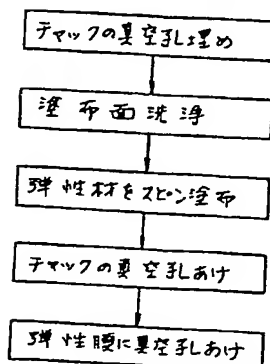 チャックの真空孔埋め
塗布面洗浄
弾性材をスピン塗布
チャックの真空孔あけ
弾性膜に真空孔あけ